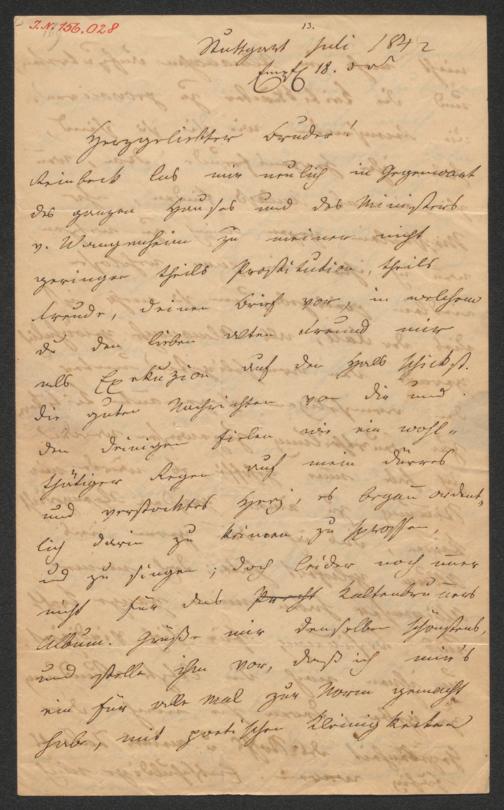 J.N. 156.028
13.
Stuttgart Juli 1842
Empf. 18.
Herzgeliebter Bruder!
Reinbeck las mir neulich in Gegenwart
des ganzen Hauses und des Ministers
v. Wangenheim zu meiner nicht
geringen theils Prostitution, theils
Freude, deinen Brief vor, in welchem
du den lieben alten Freund mir
als Exekuzion auf den Hals schickst.
Die guten Nachrichten von dir und
den Deinigen fielen wie ein wohl-
thätiger Regen auf mein dürres
und verstocktes Herz, es begann ordent-
lich darin zu keimen, zu sprossen,
und zu singen; doch leider noch immer
nicht für das Kaltenbrunners
Album. Grüße mir denselben schönstens,
und stelle ihm vor, daß ich mir's
ein für alle Mal zur Norm gemacht
habe, mit poetischen Kleinigkeiten